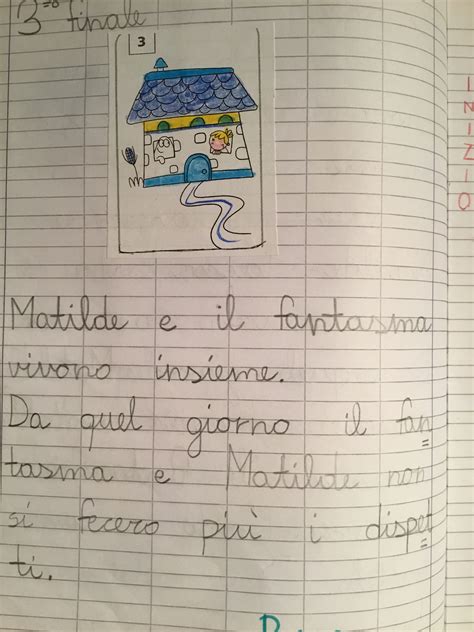 3° finale
3
Matilde e il fantasma
vivono insieme.
Da quel giorno il fan
tasma e Matilde non
si fecero più i dispet
ti.
I
N
I
Z
I
O